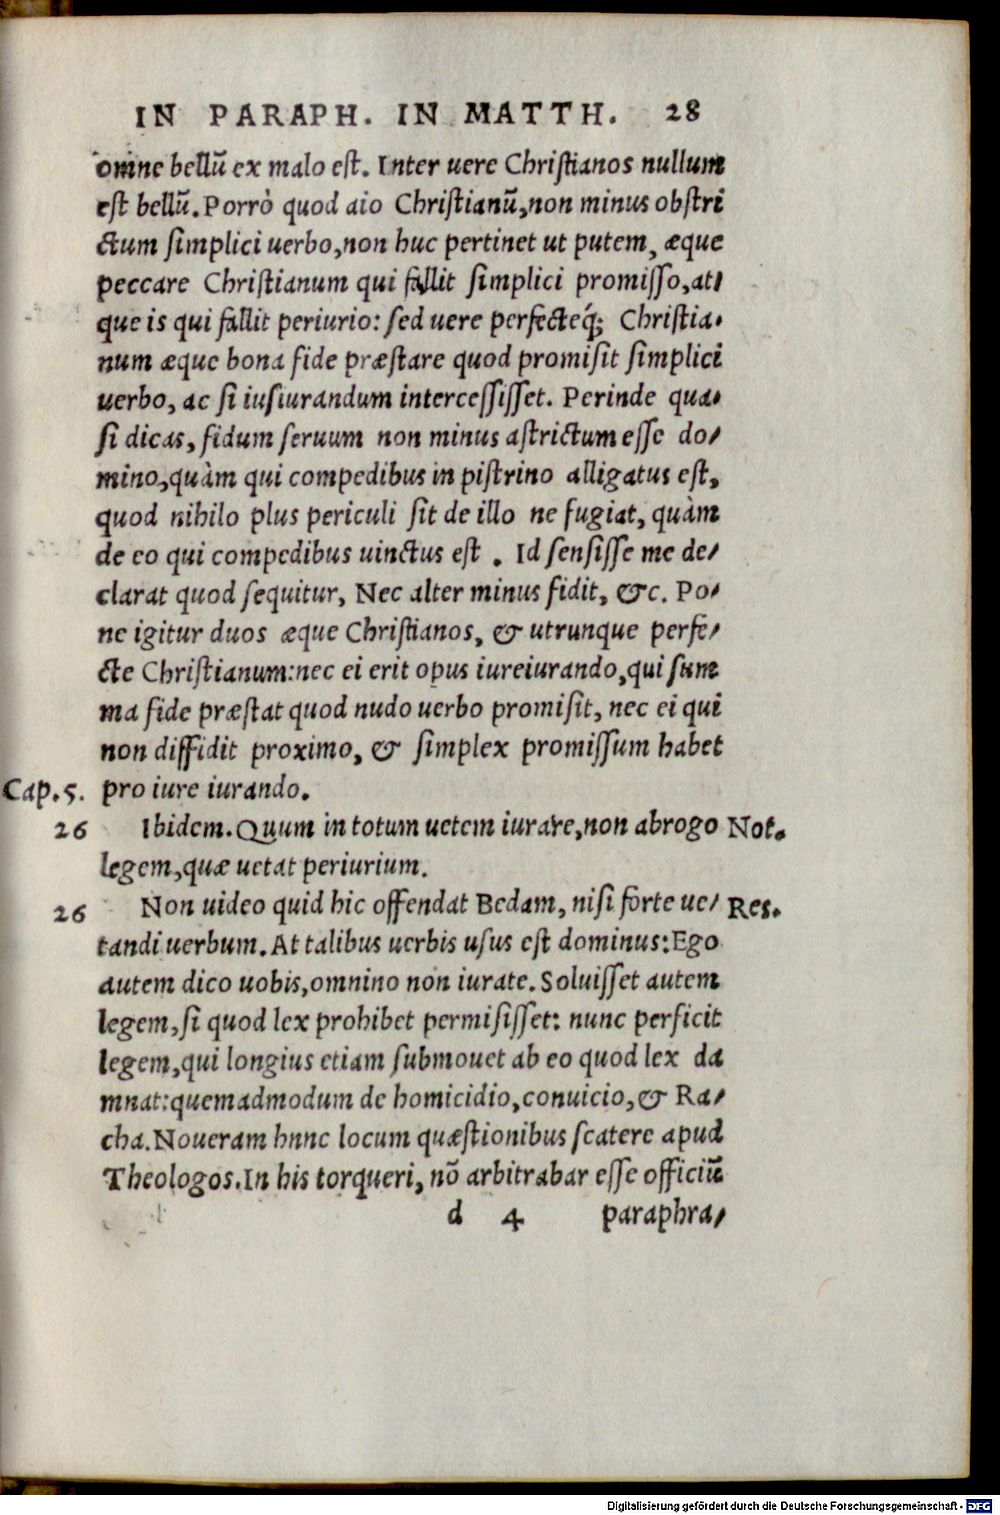 IN PARAPH. IN MATTH. 28
omne bellū ex malo est. Inter uere Christianos nullum
est bellū. Porrò quod aio Christianū, non minus obstri
ctum simplici uerbo, non huc pertinet ut putem, æque
peccare Christianum qui fallit simplici promisso, at/
que is qui fallit periurio: sed uere perfecteq́; Christia/
num æque bona fide præstare quod promisit simplici
uerbo, ac si iusiurandum intercessisset. Perinde qua/
si dicas, fidum seruum non minus astrictum esse do/
mino, quàm qui compedibus in pistrino alligatus est,
quod nihilo plus periculi sit de illo ne fugiat, quàm
de eo qui compedibus uinctus est. Id sensisse me de/
clarat quod sequitur, Nec alter minus fidit, &c. Po/
ne igitur duos æque Christianos, & utrunque perfe/
cte Christianum: nec ei erit opus iureiurando, qui sum
ma fide præstat quod nudo uerbo promisit, nec ei qui
non diffidit proximo, & simplex promissum habet
Cap. 5. pro iure iurando.
26 Ibidem. Quum in totum uetem iurare, non abrogo Not.
legem, quæ uetat periurium.
26 Non uideo quid hic offendat Bedam, nisi forte ue/ Res.
tandi uerbum. At talibus uerbis usus est dominus: Ego
autem dico uobis, omnino non iurate. Soluisset autem
legem, si quod lex prohibet permisisset: nunc perficit
legem, qui longius etiam submouet ab eo quod lex da
mnat: quemadmodum de homicidio, conuicio, & Ra/
cha. Noueram hnnc locum quæstionibus scatere apud
Theologos. In his torqueri, nō arbitrabar esse officiū
d 4 paraphra/
Digitalisierung gefördert durch die Deutsche Forschungsgemeinschaft - DFG